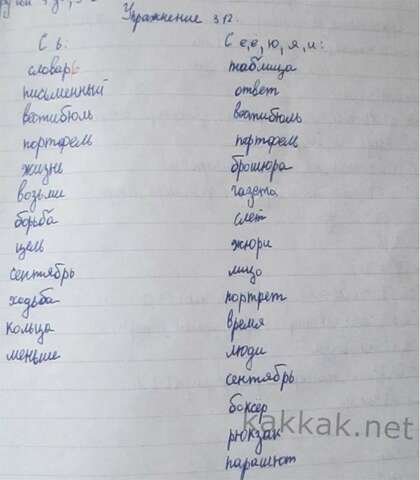 Упражнение 312.
С ь.
словарь
письменный
вестибюль
портфель
жизнь
возьми
борьба
цель
сентябрь
ходьба
кольца
меньше
С е,ё, ю, я, и:
таблица
ответ
вестибюль
портфель
брошюра
газета
слёт
жюри
лицо
портрет
время
люди
сентябрь
боксёр
рюкзак
парашют
kakkak.net